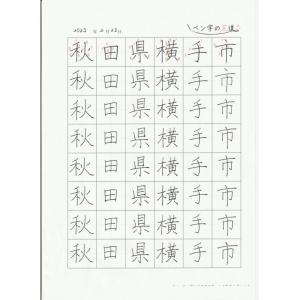 ペン字の
2023 年 2月22日
秋田県横手市
秋田県横手市
秋田県横手市
秋田県横手市
秋田県横手市
秋田県横手市
秋田県横手市
秋田県横手市